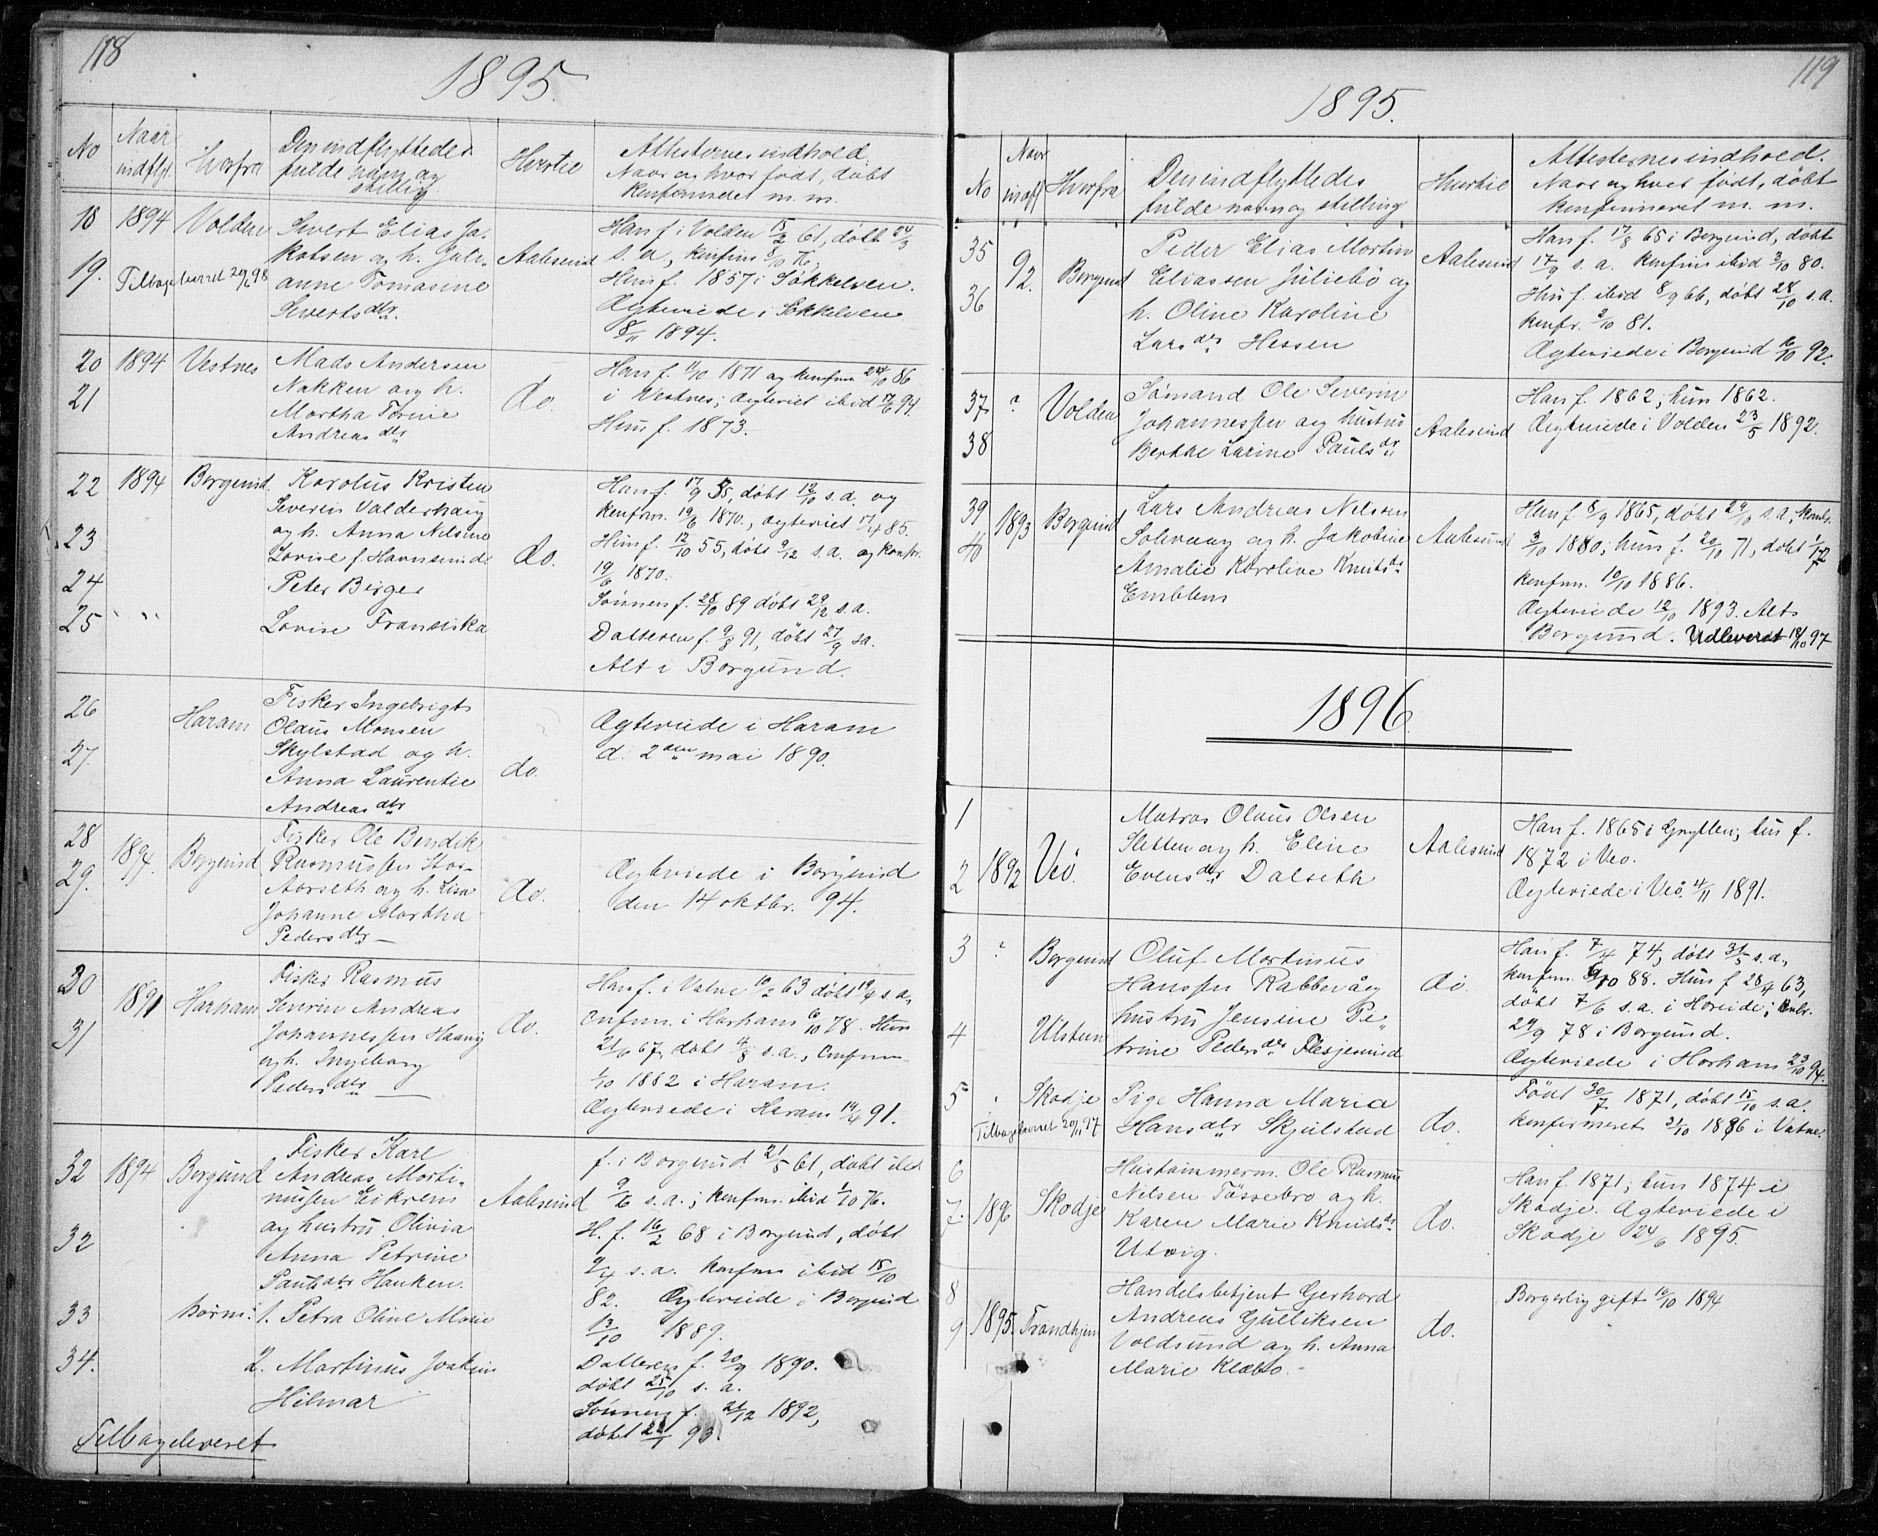 118
1895.
No
Naar indflyt.
Hvorfra
Den indflyttedes fulde navn og stilling
Hvortil
Attesternes indhold.
Naar og hvor født, døbt
konfirmeret m. m.
18 1894 Volden Sivert Elias Ja-
kobsen og h. Juli-
19. Tilbageleveret 29/6 98 anne Tomasine
Siverts dtr.
Aalesund
Han f. i Volden 15/2 61, døbt 24/3
s. a., konfirm 8/10 76.
Hun f. 1857 i Søkkelven.
Ægteviede i Søkkelven
8/11 1894.
20 1894 Vestnes Mads Andersen
21 Nakken og h.
Martha Torine
Andreas dtr
do.
Han f. 11/10 1871 og konfirm 24/10 86
i Vestnes; ægteviet ibid 17/6 94
Hun f. 1873.
22 1894 Borgund. Karolus Kristen
Severin Valderhaug
23 og h. Anna Nilsine
Lovise f. Havnsund
24 Peter Birger
25 " " Lovise Fransiska
do.
Han f. 17/9 55, døbt 12/10 s. a. og
konfrm. 19/6 1870., ægteviet 17/4 85.
Hun f. 12/10 55, døbt 9/12 s. a. og konfr.
19/6 1870.
Sønnen f. 28/10 89 døbt 29/12 s. a.
Datteren f. 9/8 91, døbt 27/9 s. a.
Alt i Borgund.
26 Haram Fisker Ingebrigt
Olaus Monsen
27. Skylstad og h.
Anna Laurentie
Andreas dtr
do.
Ægteviede i Haram
d. 2den mai 1890.
28 1894. Borgund Fisker Ole Bendik
29. Rasmussen Stor-
Aarseth og h. Lisa
Johanne Martha
Peders dtr —
do.
Ægteviede i Borgund
den 14 oktbr. 94.
30 1891 Harham Fisker Rasmus
Severin Andreas
31 Johannessen Haavig
og h. Ingeborg
Peders dtr —
do.
Han f. i Vatne 10/2 63 døbt 19/4 s. a.
Confrm. i Harham 6/10 78. Hun
21/6 67, døbt 4/8 s. a., Confrm
1/10 1882 i Haram.
Ægteviede i Haram 14/6 91.
32 1894 Borgund Fisker Kare
Andreas Marti-
nussen Eikrem
og hustru Olivia
32 Anna Petrine
Pauls dtr Hanken.
33 Børn: 1. Petra Oline Marie
34. 2. Martinus Joakim
Hilmar
Tilbageleveret
Aalesund
f. i Borgund 21/5 61, døbt ibd
9/6 s. a.; konfirm. ibid 1/10 76.
H. f. 16/2 68 i Borgund, døbt
2/4 s. a. konfirm ibid 15/10
82. Ægteviede i Borgund
13/10 1889.
Datteren f. 20/9 1890.
døbt 25/10 s. a.
Sønnen f. 21/12 1892,
døbt 22/1 93.
119
1895.
No
Naar indfl
Hvorfra
Den indflyttedes
fulde navn og stilling
Hvortil
Attesternes indhold.
Naar og hvor født, døbt
konfirmeret m. m.
35 92. Borgund Peder Elias Martin
Eliassen Juliebø og
36 h. Oline Karoline
Lars dtr Hessen
Aalesund
Han f. 17/8 65 i Borgund, døbt
17/9 s. a. konfrm ibid 3/10 80.
Hun f. ibid 8/9 66, døbt 28/10 s. a.
konfr. 2/10 81.
Ægteviede i Borgund 16/10 92.
37 ? Volden Sømand Ole Severin
Johannessen og hustru
38 Berthe Larine Pauls dr
Aalesund
Han f. 1862; hun 1862.
Ægteviede i Volden 23/5 1892.
39 1893 Borgund Lars Andreas Nilsen
40 Solevaag og h. Jakobine
Amalie Karoline Knuts dr
Emblem
Aalesund
Han f. 8/9 1865, døbt 29/10 s. a., konfr.
3/10 1880; hun f. 20/10 71, døbt 1/12
konfrm. 10/10 1886.
Ægteviede 12/10 1893. Alt i
Borgund. Udleveret 18/10 97
1896.
1 Matros Olaus Olsen
2 1892 Veø. Sletten og h. Eline
Evens dtr Dalseth
Aalesund
Han f. 1865 i Grytten; hun f.
1872 i Veø.
Ægteviede i Veø. 4/11 1891.
3 ? Borgund Oluf Martinus
Hanssen Rabbevåg
4 Ulstein hustru Jensine Pe-
trine Peders dtr Flesjesund
do.
Han f. 7/4 74, døbt 31/5 s. a.,
konfrm. 6/10 88. Hun f 28/4 63,
døbt 7/6 s. a. i Hareide; konfr.
29/9 78 i Borgund.
Ægteviede i Harham 23/10 94.
5 " Skodje Pige Hanna Maria
Tilbageleveret 20/11 97 Hans dtr Skjelstad
do.
Født 30/7 1871, døbt 15/10 s. a.
konfirmeret 31/10 1886 i Vatne.
6 Hustømmerm. Ole Rasmus
7. 1896 Skodje Nilsen Fossebro og h.
Karen Marie Knuds dr
Utvig.
do.
Han f. 1871; hun 1874 i
Skodje. Ægteviede i
Skodje 24/6 1895.
8 Handelsbetjent Gerhard
9 1895. Trondhjem Andreas Gulliksen
Voldsund og h. Anna
Marie Klæbo.
do.
Borgerlig gift 16/10 1894